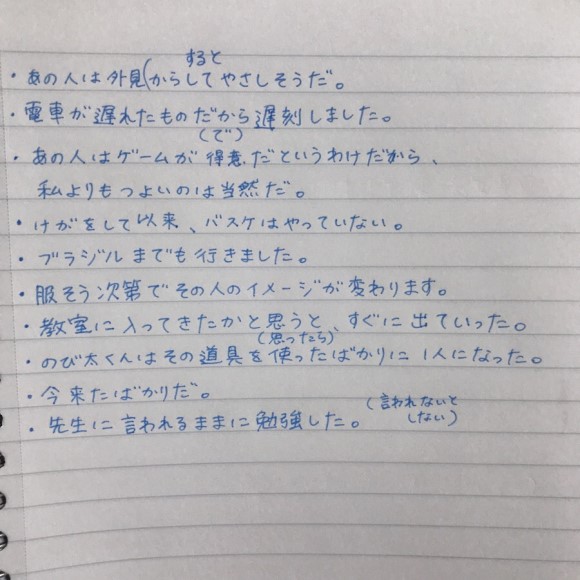 すると
・あの人は外見(からしてやさしそうだ。
・電車が遅れたものだから遅刻しました。
(で)
・あの人はゲームが得意だというわけだから、
私よりもつよいのは当然だ。
・けがをして以来、バスケはやっていない。
・ブラジルまでも行きました。
・服そう次第でその人のイメージが変わります。
・教室に入ってきたかと思うと、すぐに出ていった。
(思ったら)
・のび太くんはその道具を使ったばかりに1人になった。
・今来たばかりだ。
・先生に言われるままに勉強した。
(言われないと
しない)